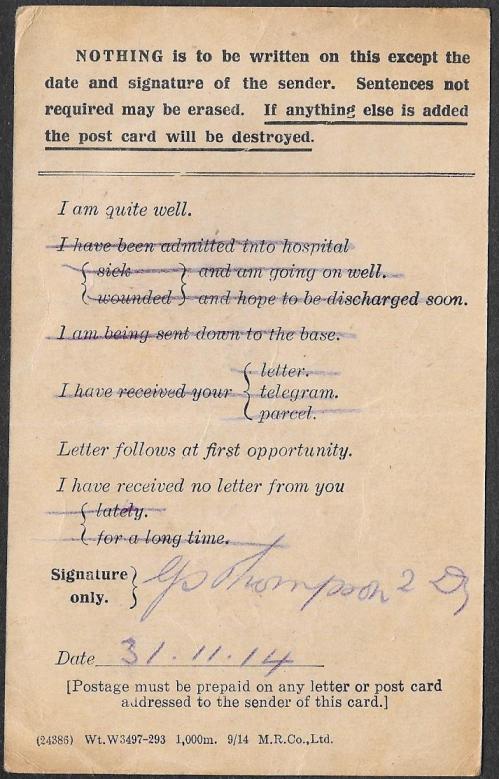 NOTHING is to be written on this except the
date and signature of the sender. Sentences not
required may be erased. If anything else is added
the post card will be destroyed.
I am quite well.
I have been admitted into hospital
{ sick } and am going on well.
{ wounded } and hope to be discharged soon.
I am being sent down to the base.
{ letter.
I have received your { telegram.
{ parcel.
Letter follows at first opportunity.
I have received no letter from you
{ lately.
{ for a long time.
Signature } GS Thompson 2
only.
Date 31.11.14
[Postage must be prepaid on any letter or post card
addressed to the sender of this card.]
(24386) Wt.W3497-293 1,000m. 9/14 M.R.Co.,Ltd.